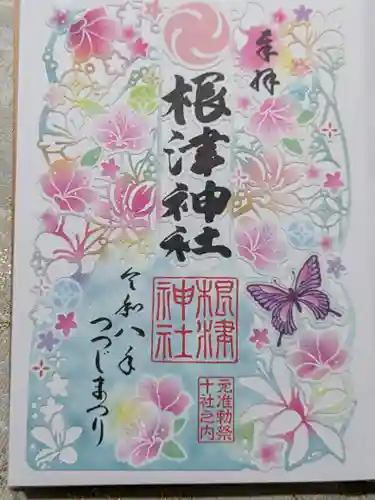 奉拝
根津神社
令和八年
つつじまつり
根津
神社
元准勅祭
十社之内